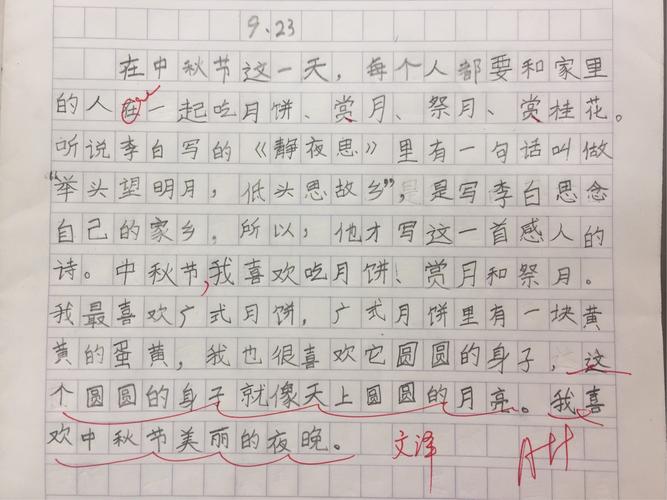 9.23
在中秋节这一天，每个人部要和家里
的人在一起吃月饼、赏月、祭月、赏桂花。
听说李白写的《静夜思》里有一句话叫做
“举头望明月，低头思故乡”，是写李白思念
自己的家乡，所以，他才写这一首感人的
诗。中秋节，我喜欢吃月饼、赏月和祭月。
我最喜欢广式月饼，广式月饼里有一块黄
黄的蛋黄，我也很喜欢它圆圆的身子，这
个圆圆的身子就像天上圆圆的月亮。我喜
欢中秋节美丽的夜晚。 文泽 A++